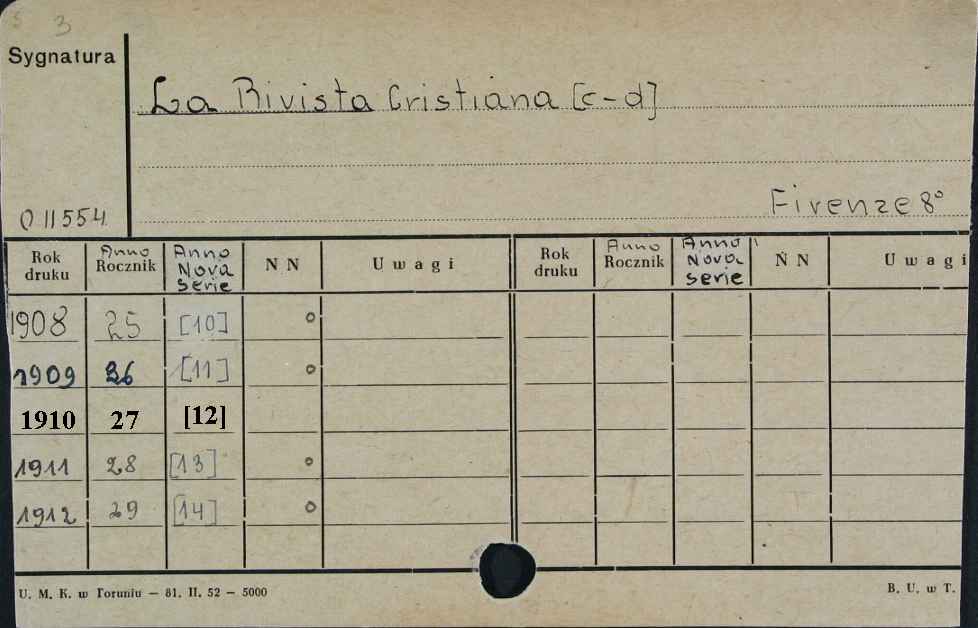 5 3
Sygnatura
La Rivista Cristiana [c-d]
Firenze 8°
011554
Rok druku Anno Rocznik Anno Nova serie N N Uwagi Rok druku Anno Rocznik Anno Nova serie N N Uwagi
1908 25 [10] o
1909 26 [11] o
1910 27 [12]
1911 28 [13] o
1912 29 [14] o
U. M. K. w Toruniu — 81. II. 52 — 5000 B. U. w T.